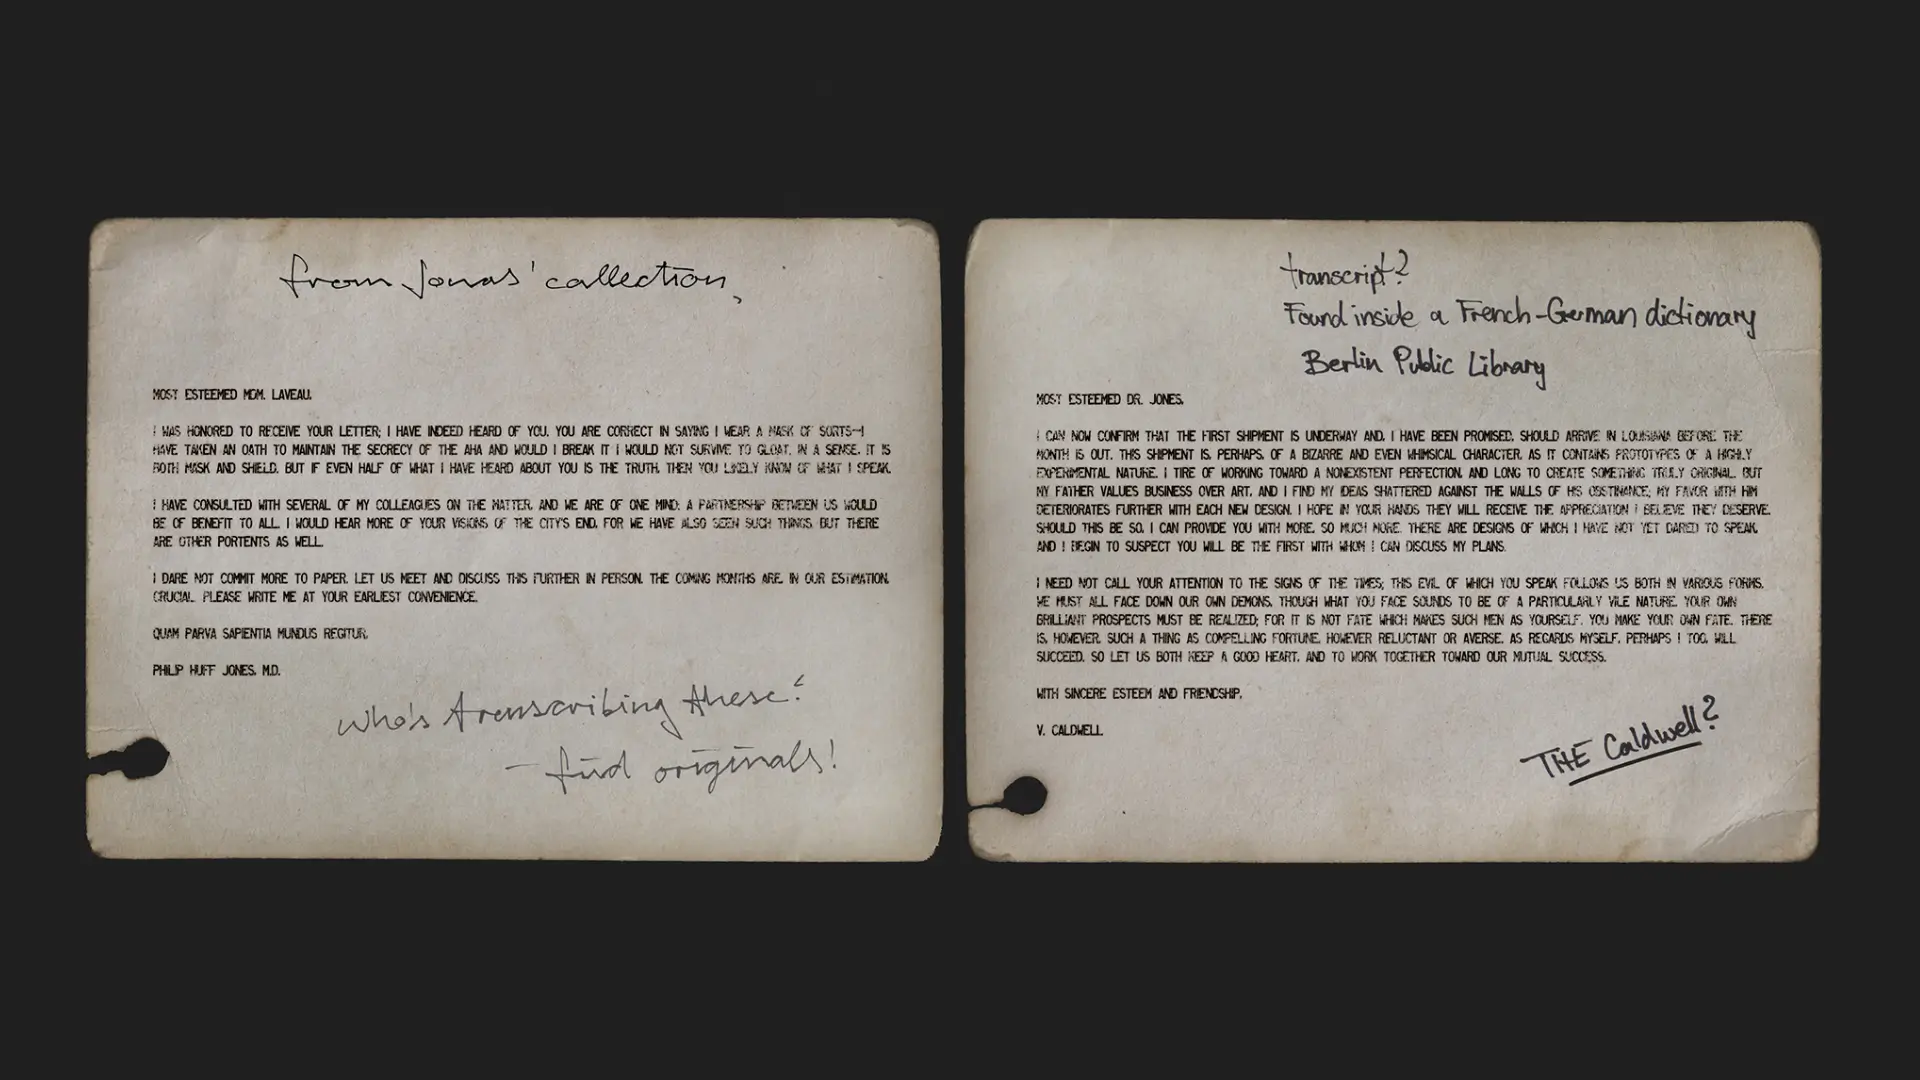 from Jonas' collection,
MOST ESTEEMED MDM. LAVEAU,
I WAS HONORED TO RECEIVE YOUR LETTER; I HAVE INDEED HEARD OF YOU. YOU ARE CORRECT IN SAYING I WEAR A MASK OF SORTS—I
HAVE TAKEN AN OATH TO MAINTAIN THE SECRECY OF THE AHA AND WOULD I BREAK IT I WOULD NOT SURVIVE TO GLOAT. IN A SENSE, IT IS
BOTH MASK AND SHIELD. BUT IF EVEN HALF OF WHAT I HAVE HEARD ABOUT YOU IS THE TRUTH, THEN YOU LIKELY KNOW OF WHAT I SPEAK.
I HAVE CONSULTED WITH SEVERAL OF MY COLLEAGUES ON THE MATTER, AND WE ARE OF ONE MIND: A PARTNERSHIP BETWEEN US WOULD
BE OF BENEFIT TO ALL. I WOULD HEAR MORE OF YOUR VISIONS OF THE CITY'S END, FOR WE HAVE ALSO SEEN SUCH THINGS. BUT THERE
ARE OTHER PORTENTS AS WELL.
I DARE NOT COMMIT MORE TO PAPER. LET US MEET AND DISCUSS THIS FURTHER IN PERSON. THE COMING MONTHS ARE, IN OUR ESTIMATION,
CRUCIAL. PLEASE WRITE ME AT YOUR EARLIEST CONVENIENCE.
QUAM PARVA SAPIENTIA MUNDUS REGITUR,
PHILIP HUFF JONES, M.D.
Who's transcribing these?
- find originals!
transcript?
Found inside a French-German dictionary
Berlin Public Library
MOST ESTEEMED DR. JONES,
I CAN NOW CONFIRM THAT THE FIRST SHIPMENT IS UNDERWAY AND, I HAVE BEEN PROMISED, SHOULD ARRIVE IN LOUISIANA BEFORE THE
MONTH IS OUT. THIS SHIPMENT IS, PERHAPS, OF A BIZARRE AND EVEN WHIMSICAL CHARACTER, AS IT CONTAINS PROTOTYPES OF A HIGHLY
EXPERIMENTAL NATURE. I TIRE OF WORKING TOWARD A NONEXISTENT PERFECTION, AND LONG TO CREATE SOMETHING TRULY ORIGINAL. BUT
MY FATHER VALUES BUSINESS OVER ART, AND I FIND MY IDEAS SHATTERED AGAINST THE WALLS OF HIS OBSTINANCE; MY FAVOR WITH HIM
DETERIORATES FURTHER WITH EACH NEW DESIGN. I HOPE IN YOUR HANDS THEY WILL RECEIVE THE APPRECIATION I BELIEVE THEY DESERVE.
SHOULD THIS BE SO, I CAN PROVIDE YOU WITH MORE. SO MUCH MORE. THERE ARE DESIGNS OF WHICH I HAVE NOT YET DARED TO SPEAK,
AND I BEGIN TO SUSPECT YOU WILL BE THE FIRST WITH WHOM I CAN DISCUSS MY PLANS.
I NEED NOT CALL YOUR ATTENTION TO THE SIGNS OF THE TIMES; THIS EVIL OF WHICH YOU SPEAK FOLLOWS US BOTH IN VARIOUS FORMS.
WE MUST ALL FACE DOWN OUR OWN DEMONS, THOUGH WHAT YOU FACE SOUNDS TO BE OF A PARTICULARLY VILE NATURE. YOUR OWN
BRILLIANT PROSPECTS MUST BE REALIZED; FOR IT IS NOT FATE WHICH MAKES SUCH MEN AS YOURSELF. YOU MAKE YOUR OWN FATE. THERE
IS, HOWEVER, SUCH A THING AS COMPELLING FORTUNE, HOWEVER RELUCTANT OR AVERSE. AS REGARDS MYSELF, PERHAPS I TOO, WILL
SUCCEED. SO LET US BOTH KEEP A GOOD HEART, AND TO WORK TOGETHER TOWARD OUR MUTUAL SUCCESS.
WITH SINCERE ESTEEM AND FRIENDSHIP,
V. CALDWELL
THE Caldwell?